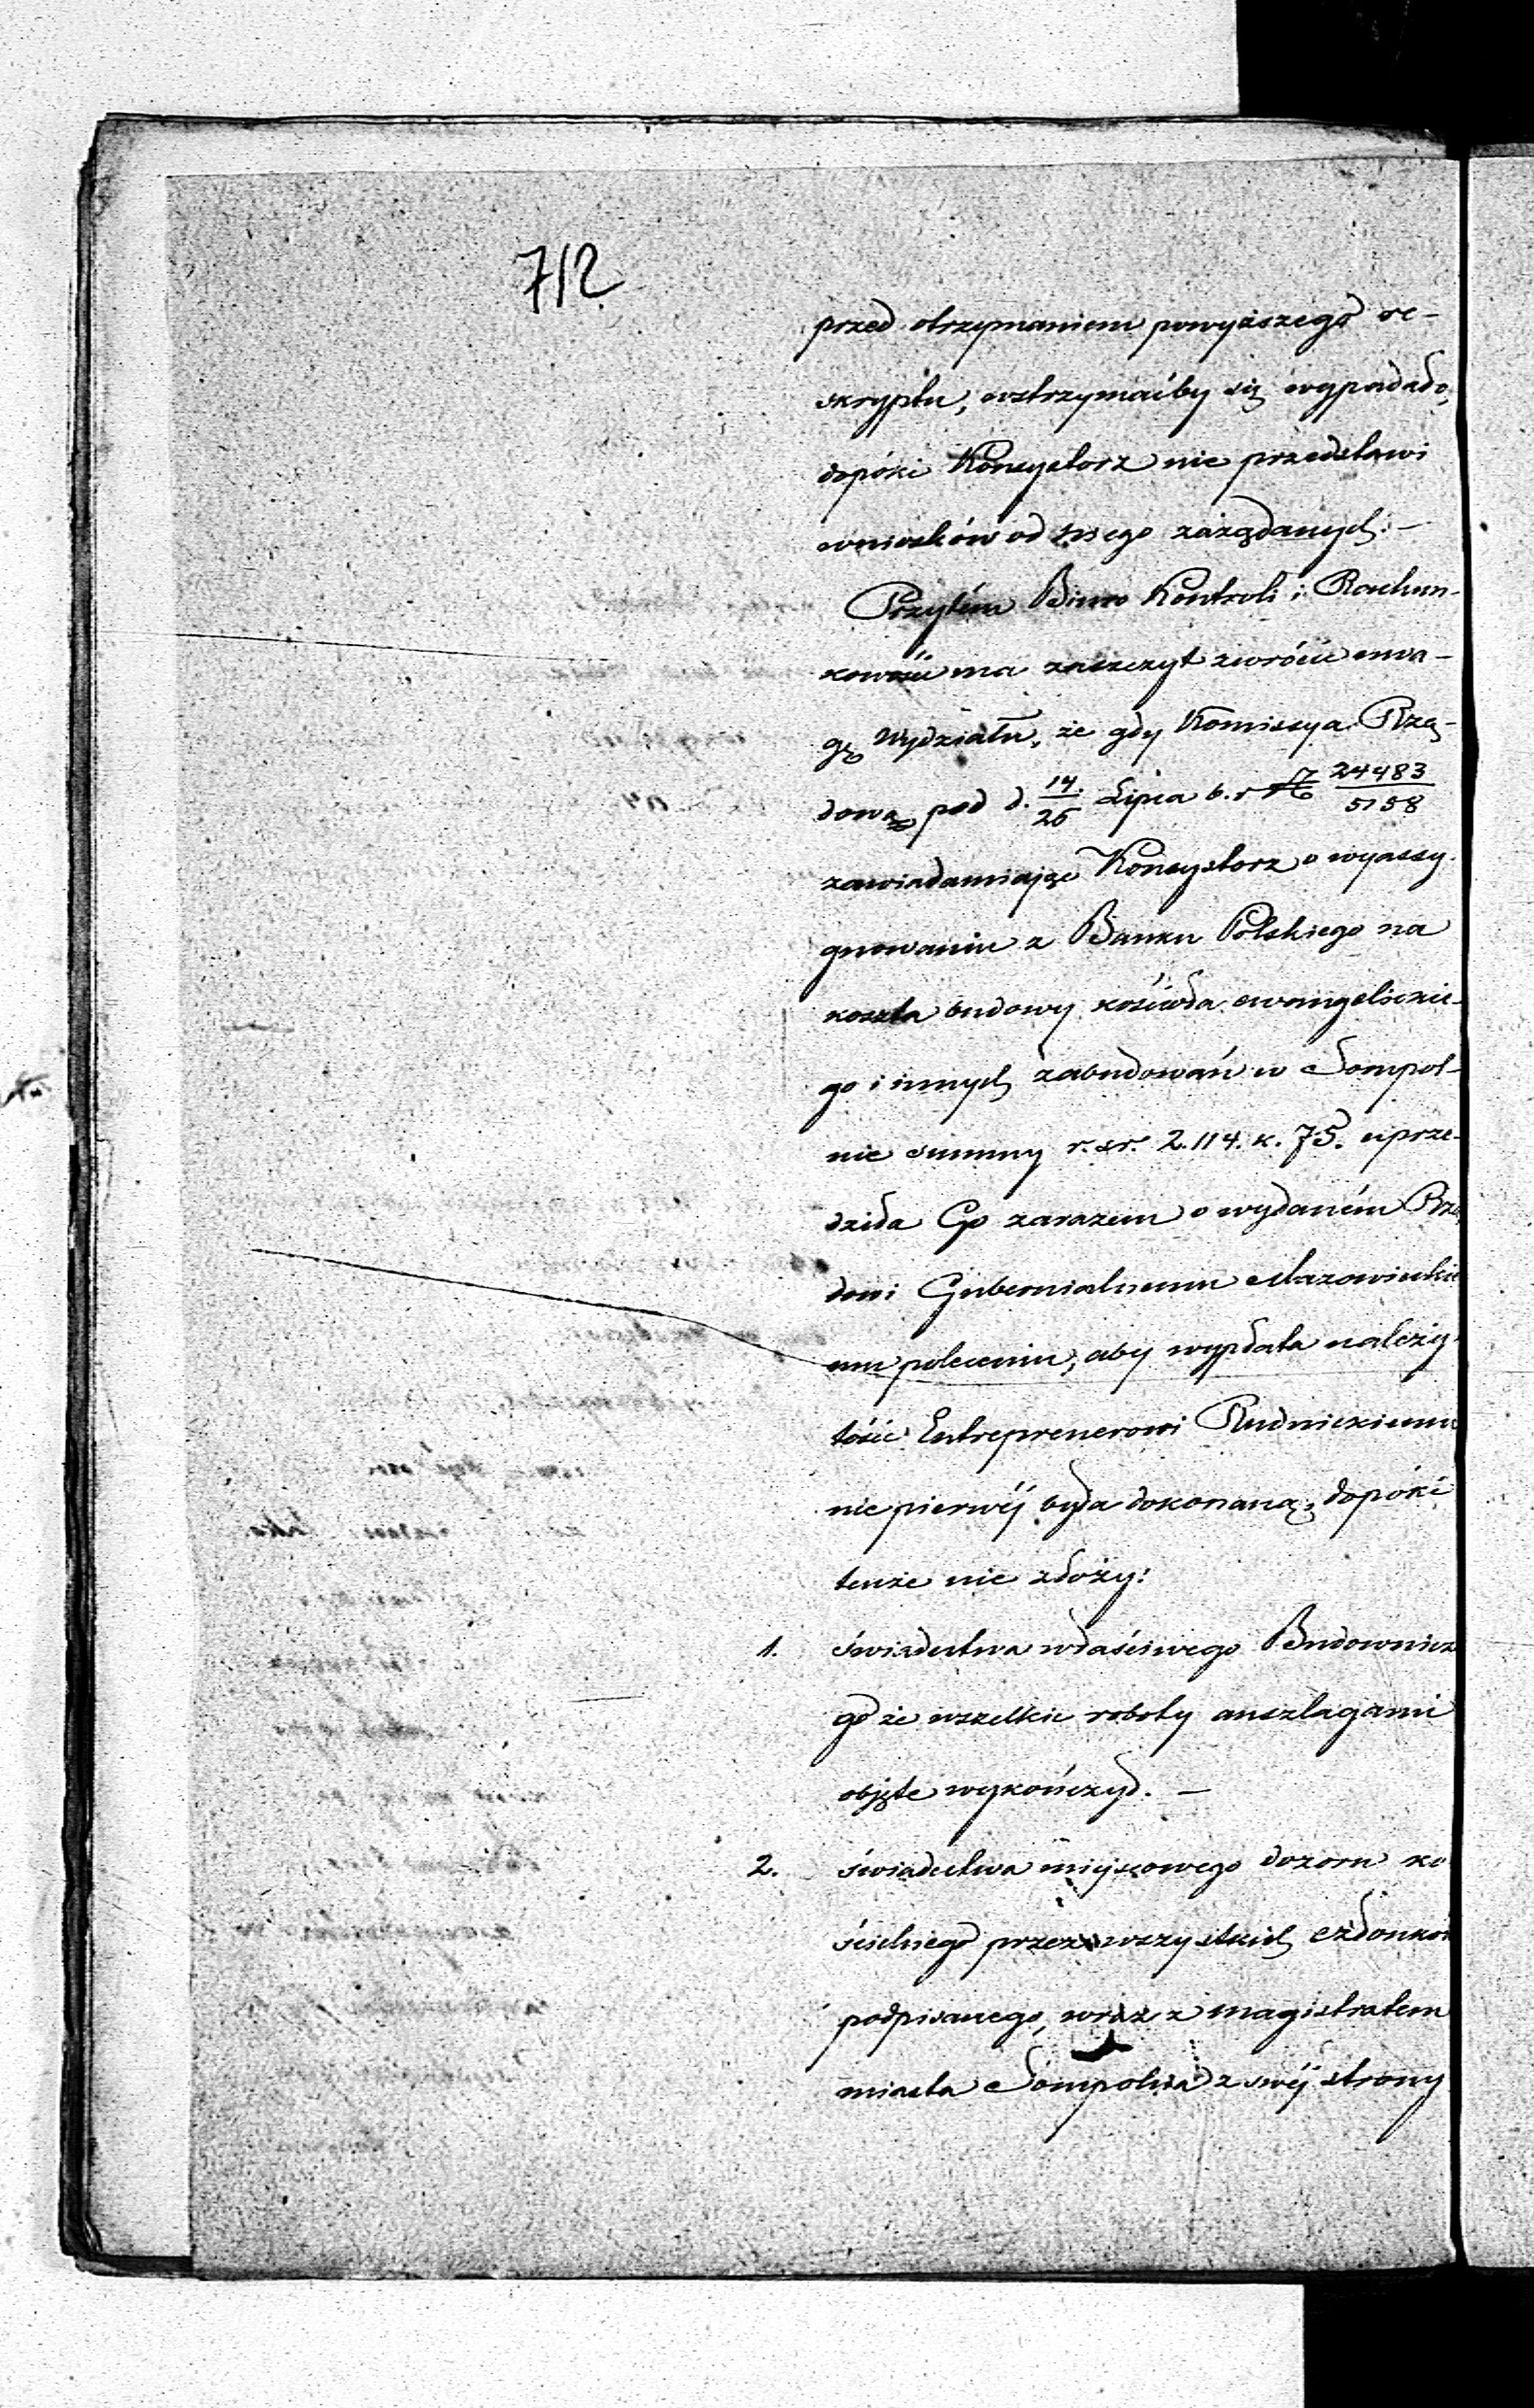 712
przed otrzymaniem powyższego re-
skryptu, wstrzymaćby się wypadało,
dopóki Konsystorz nie przedstawi
wniosków od niego zażądanych. —
Przytém Biuro Kontroli i Rachun-
kowości ma zaszczyt zwrócić uwa-
gę Wydziału, że gdy Komissya Rzą-
dowa pod d. 14/26 Lipca b. r. № 24483/5158
zawiadamiając Konsystorz o wyassy-
gnowaniu z Banku Polskiego na
koszta budowy kościoła ewangelickie-
go i innych zabudowań w Sompol-
nie summy r. sr. 2.114. k. 75. uprze-
dziła Go zarazem o wydaném Rzą
dowi Gubernialnemu Mazowieckie
mu poleceniu, aby wypłata należy-
tości Entreprenerowi Rudnickiemu
nie pierwéj była dokonaną, dopóki
tenże nie złoży:
1. świadectwa właściwego Budownicze
go że wszelkie roboty anszlagami
objęte wykończył. —
2. świadectwa miejscowego dozoru ko
ścielnego przez wszystkich członków
podpisanego, wraz z magistratem
miasta Sompolna z swéj strony